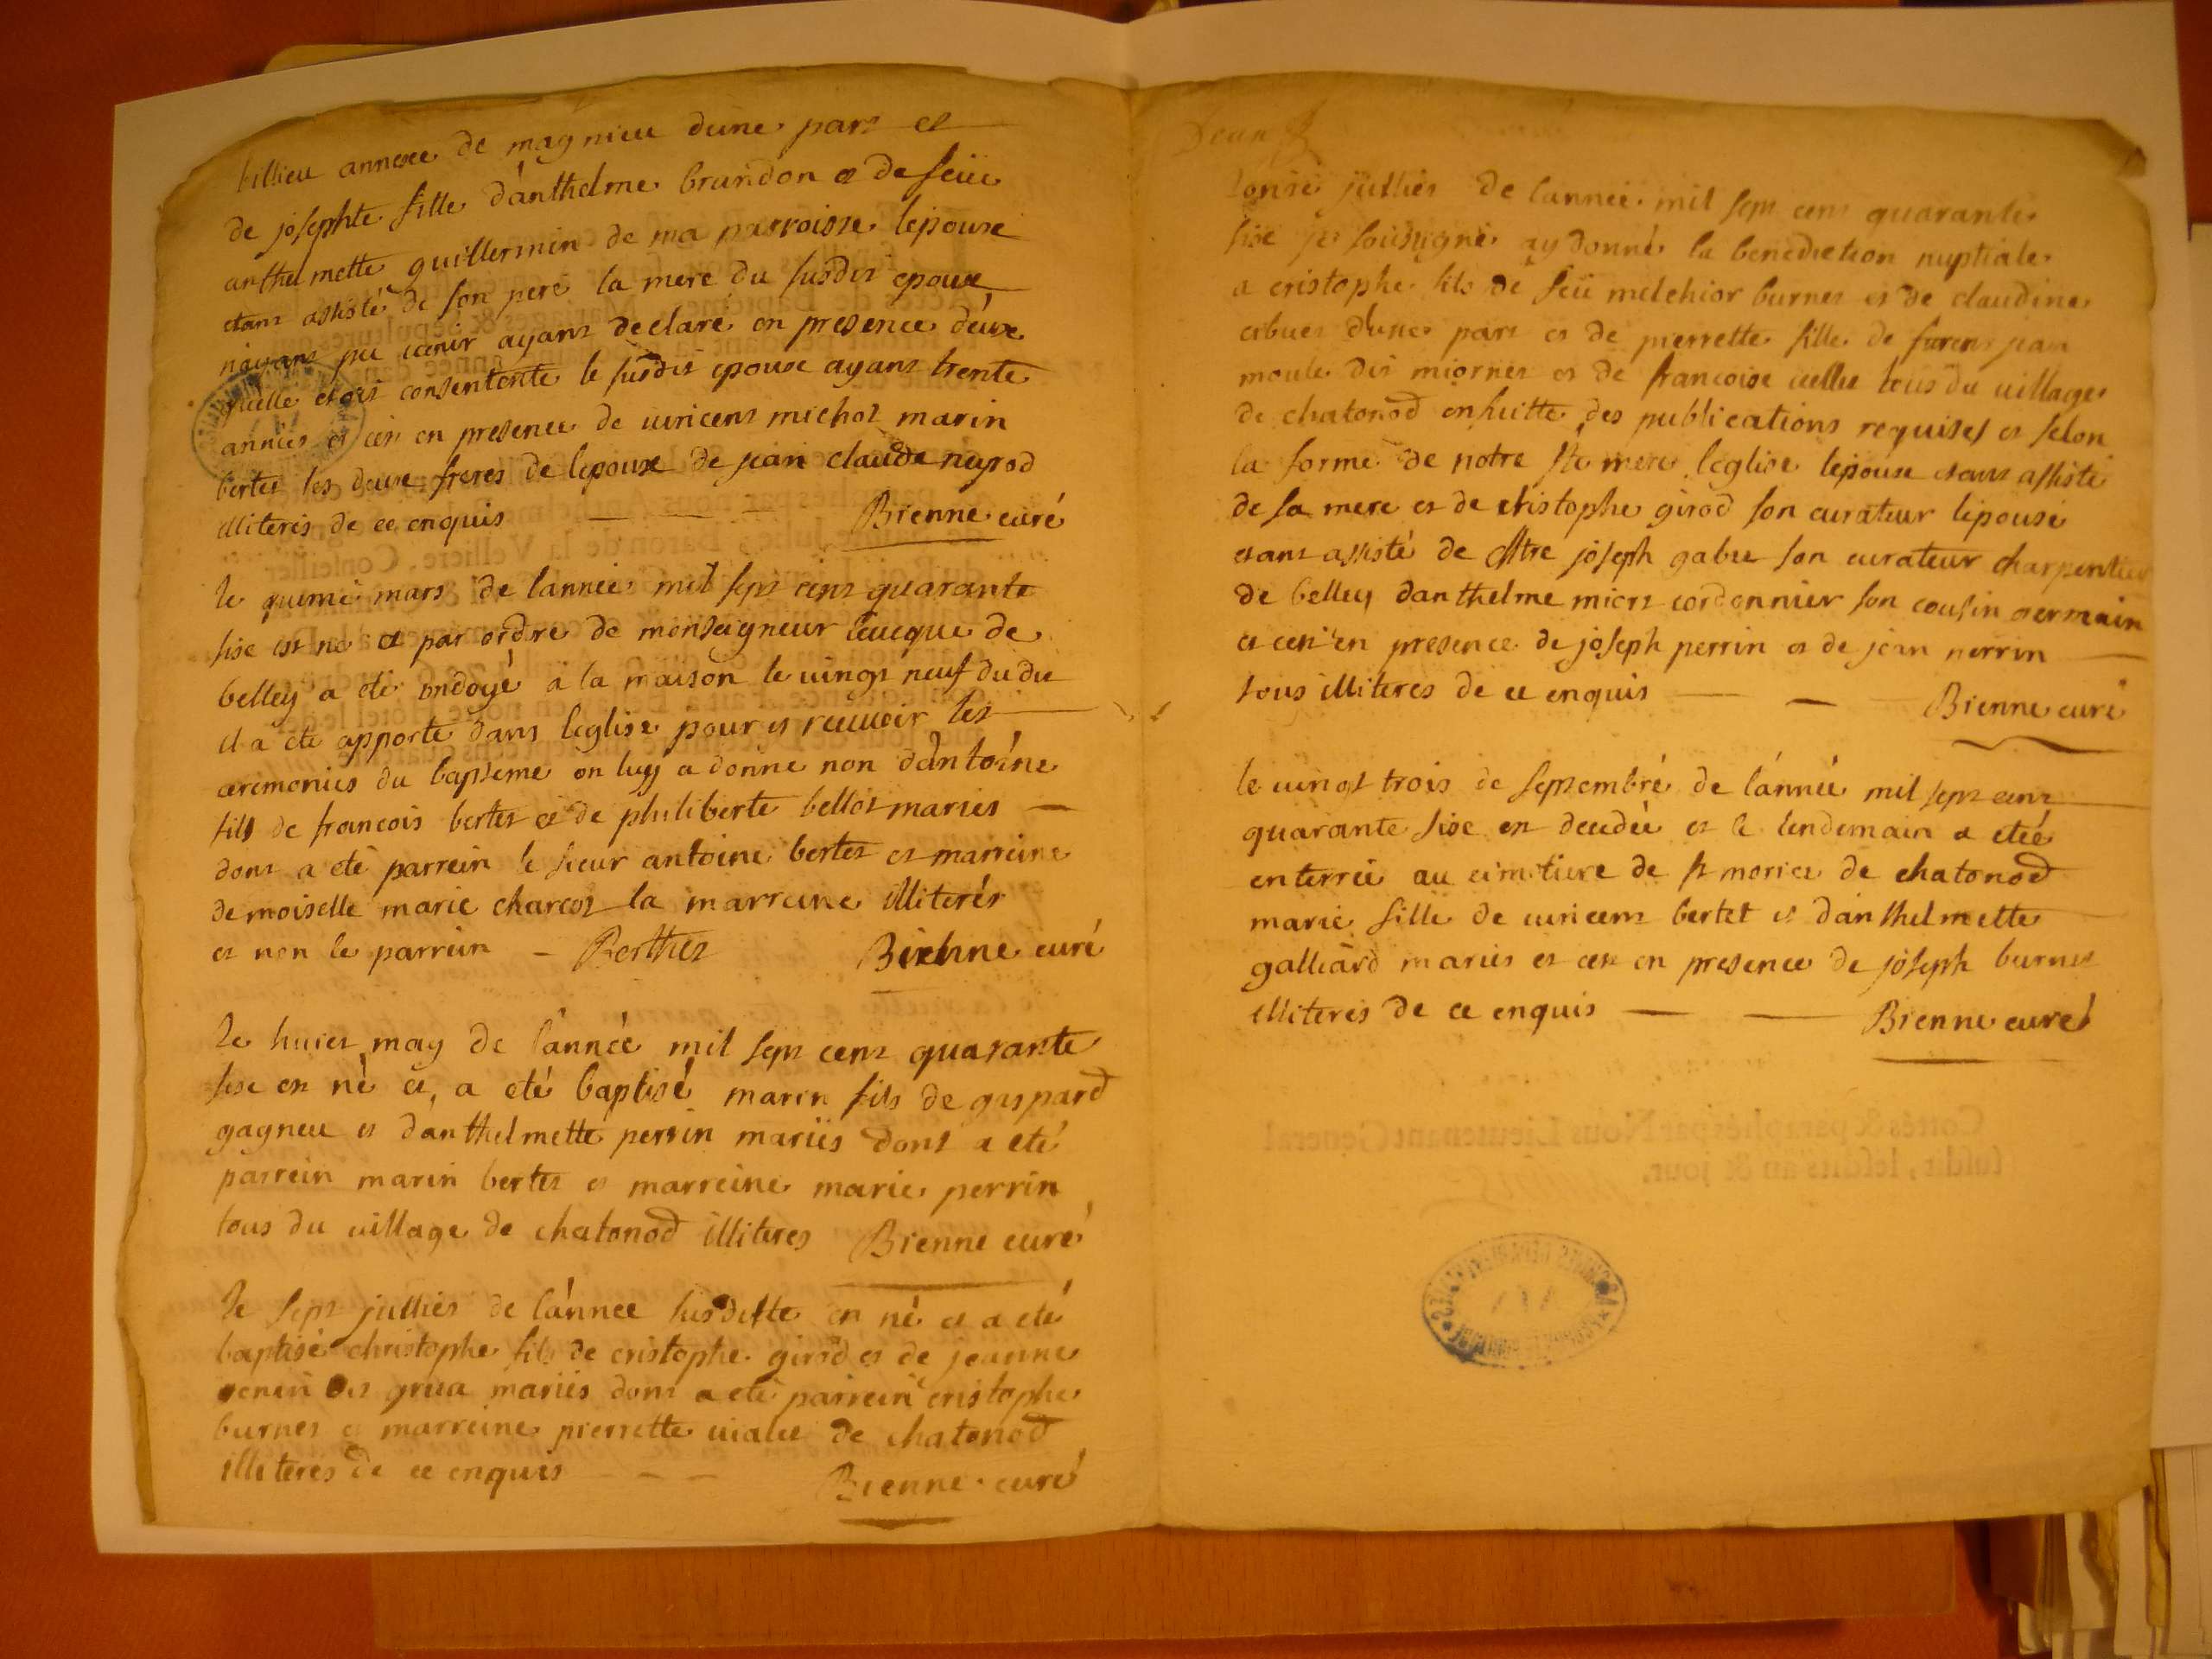 billieu annexee de magnieu dune part et
de josephte fille d'anthelme brundon et de feüe
anthelmette guillermin de ma parroisse lepouse
etant assisté de son pere la mere du susdit epoux
nayant pu venir ayant declaré en presence deux
quelle etoit consentente le susdit epoux ayant trente
années et cen en presence de vincent michot marin
bertet les deux freres de lepoux de jean claude neyrod
illiteris de ce enquis Bienne curé
le quinsé mars de lannée mil sept cent quarante
sixe est né et par ordre de monseigneur leveque de
belley a eté ondoyé a la maison le vingt neuf du du
il a eté apporté dans leglise pour y recevoir les
ceremonies du bapteme on luy a donné non dantoine
fils de francois bertet et de philiberte bellot mariés
dont a eté parrein le sieur antoine bertet et marreine
demoiselle marie charcot la marreine illiterés
et non le parrein Berthet Bienne curé
le huict may de l'année mil sept cent quarante
sixe en né et a eté baptisé marin fils de gaspard
gagneu et danthelmette perrin mariés dont a eté
parrein marin bertet et marreine marie perrin
tous du village de chatonod illiteres Bienne curé
le sept julliet de lánnee susditte en né et a eté
baptisé christophe fils de cristophe girod et de jeanne
grua mariés dont a eté parrein cristophe
burnet et marreine pierrette vialet de chatonod
illiteres de ce enquis Bienne curé
Jean
Lonsé julliet de lannee mil sept cent quarante
sixe je sousigné ay donné la benediction nuptiale
a cristophe fils de feü melchior burnet et de claudine
dune part et de pierrette fille de jean
moule dit miornet et de francoise tous du village
de chatonod ensuitte des publications requises et selon
la forme de notre ste mere leglise lepoux etant assisté
de sa mere et de christophe girod son curateur lepouse
etant assisté de Mtre joseph gabet son curateur charpentier
de belley danthelme miort cordonnier son cousin germain
et cen en presence de joseph perrin et de jean perrin
tous illiteres de ce enquis Bienne curé
le vingt trois de septembre de lánnée mil sept cent
quarante sixe en decedée et le lendemain a eteé
enterrée au cimetiere de st moriet de chatonod
marie fille de vincent bertet et danthelmette
galliard mariés et cen en presence de joseph burnet
illiteres de ce enquis Bienne curé